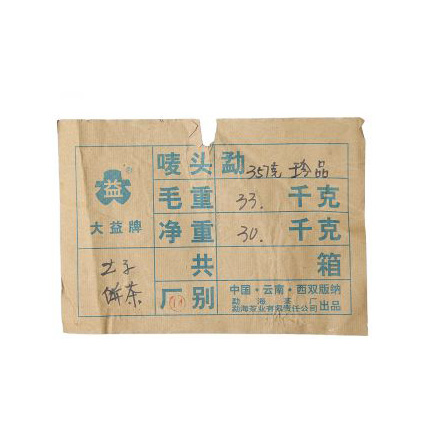 唛头勐 357克 珍品
益
毛重 33. 千克
大益牌
净重 30. 千克
共 箱
饼茶
厂别
中国·云南·西双版纳
勐海茶厂
勐海茶业有限责任公司 出品